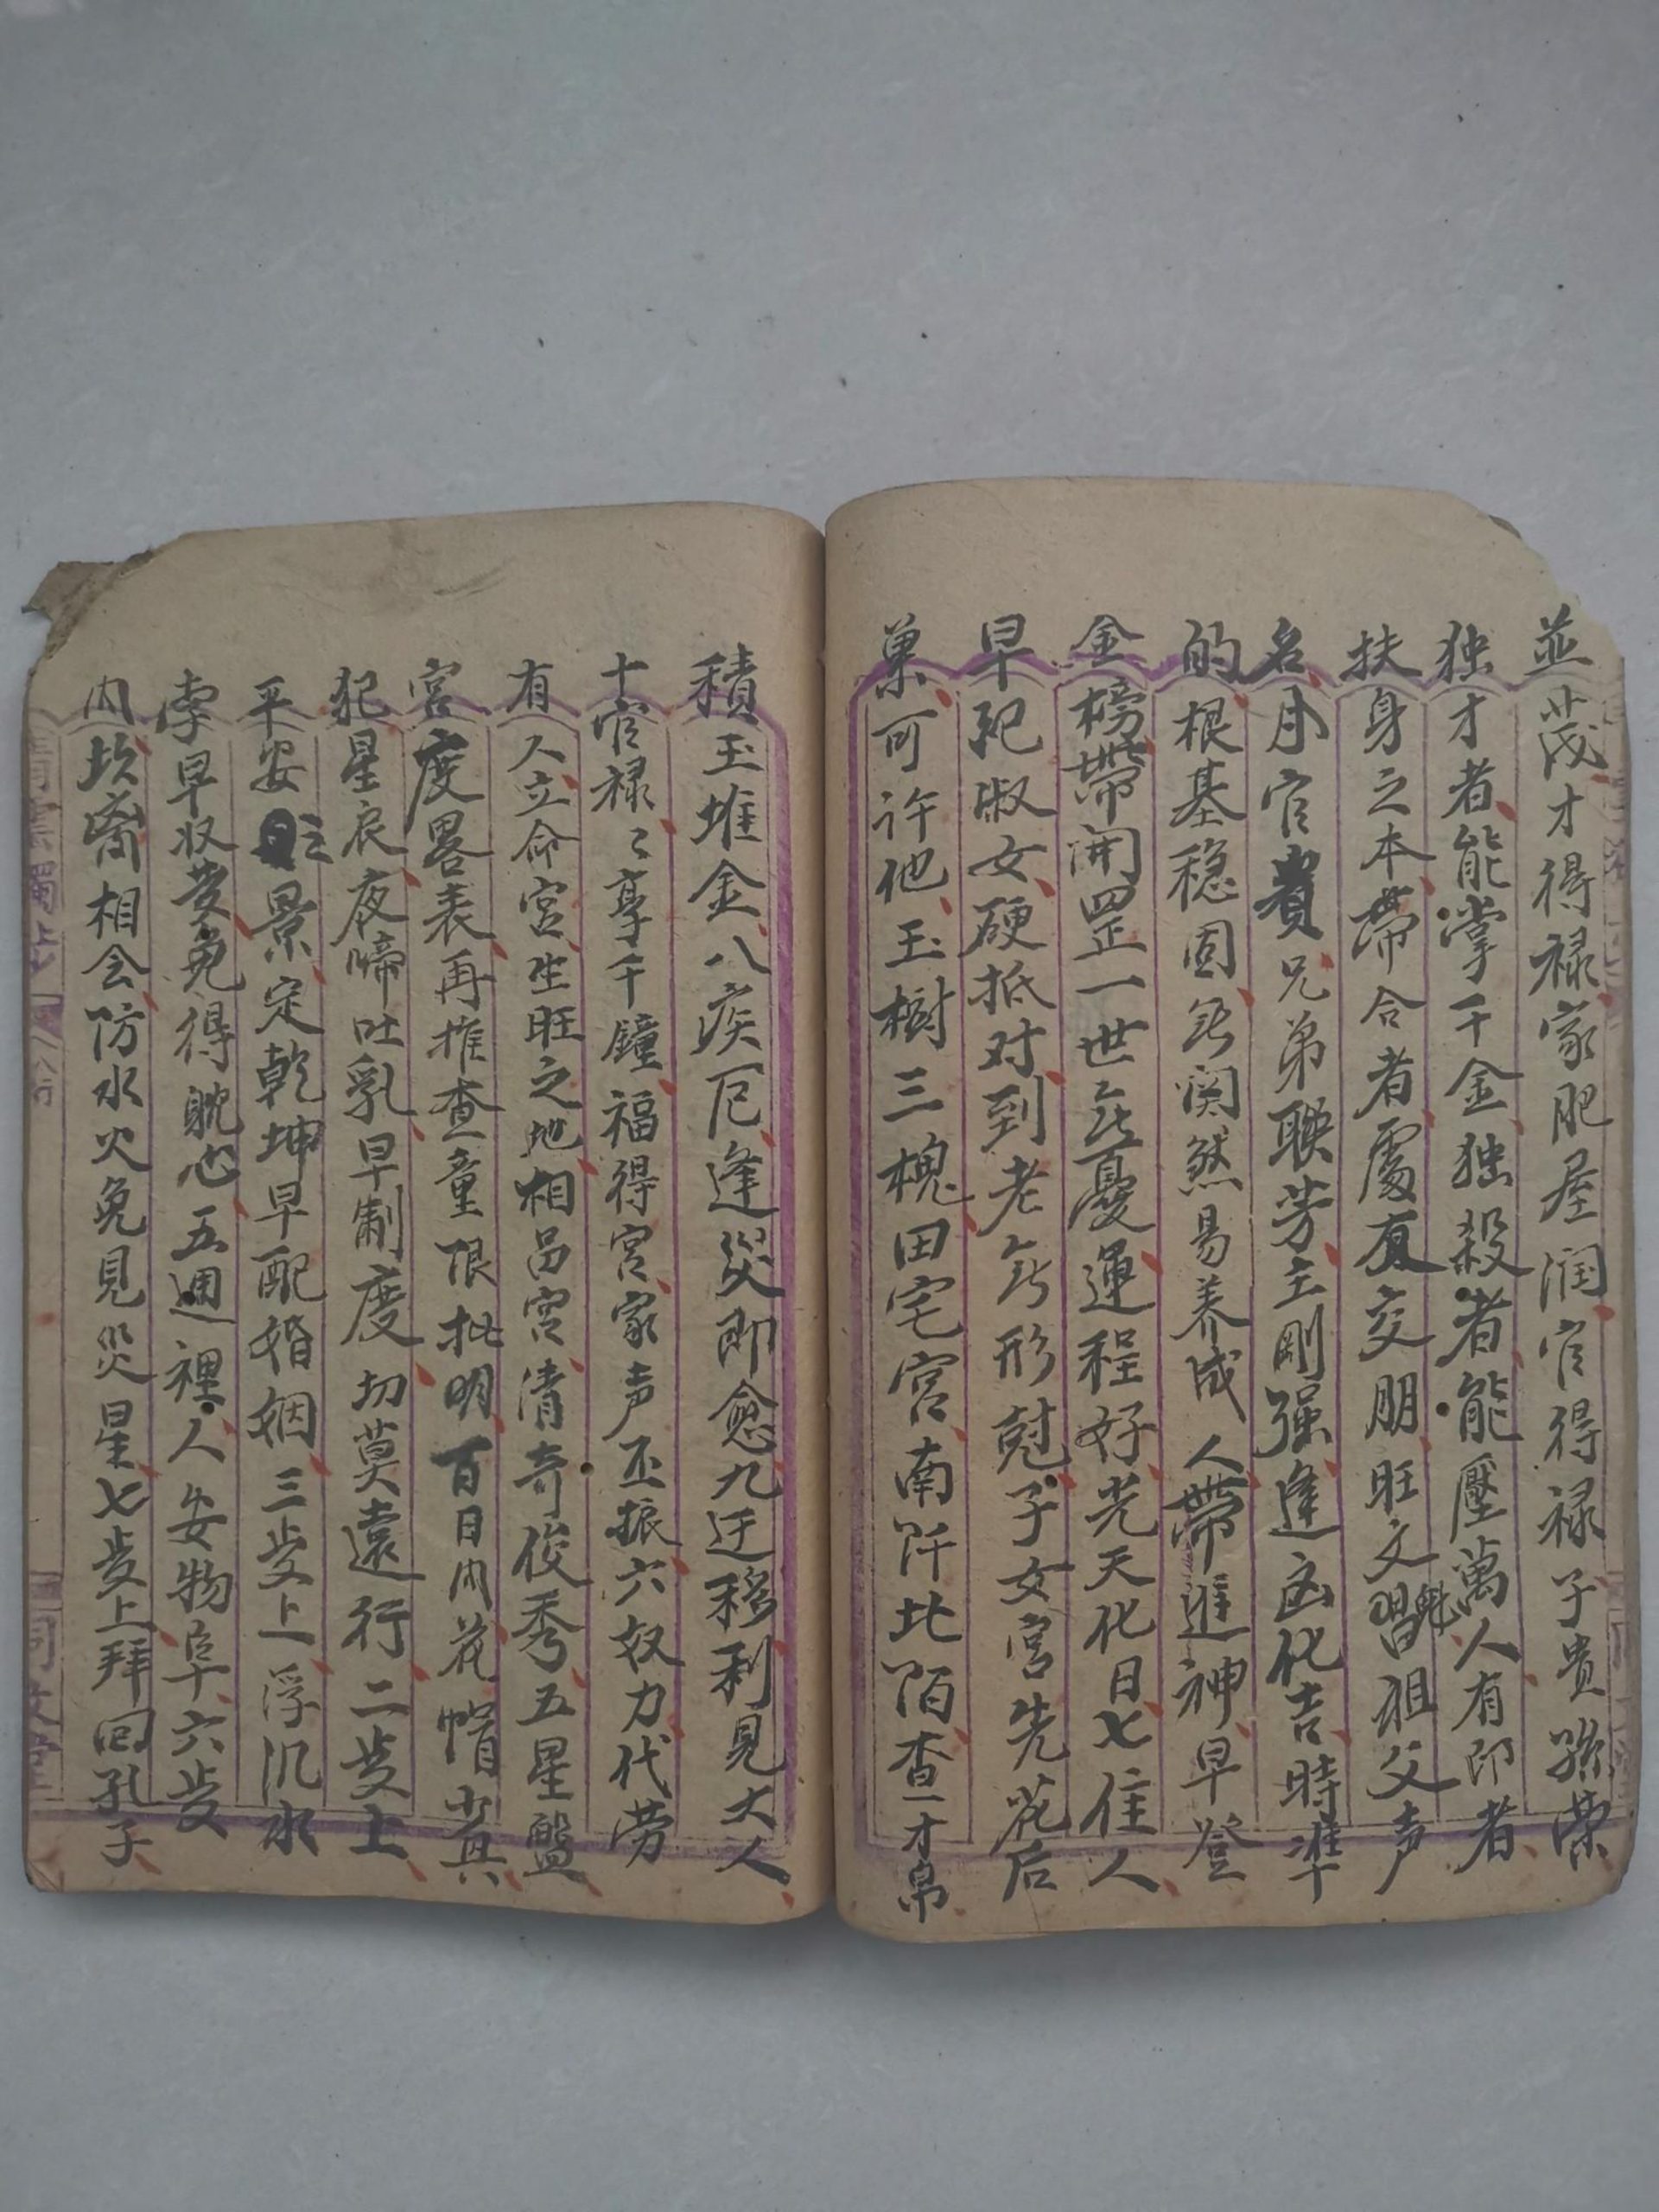 並茂才得禄家肥屋润官得禄子貴孫荣
独才者能掌千金独殺者能壓萬人有印者
扶身之本帶合者處有交朋旺文昌魁祖父声
名月官貴兄弟联芳主剛强逢凶化吉時準
的根基穏固無関煞易养成人帶進神早登
金榜帶開罡一世無憂運程好光天化日七住人
早配淑女硬抵对到老無形尅子女宮先花后
菓可许他玉樹三槐田宅宮南阡北陌查才帛
積玉堆金八疾厄逢災即愈九迁移利見大人
十官禄々享千鐘福得宮家声丕振六奴力代劳
有人立命宮生旺之地相皃宮清奇俊秀五星盤
宮度畧表再推查童限批明百日内花帽少具
犯星辰夜啼吐乳早制度切莫遠行二岁上
平安 景定乾坤早配婚姻三岁上浮沉水
孛早収煞免得眈心五週裡人安物阜六岁
内坎离相会防水火免見災星七岁上拜回孔子